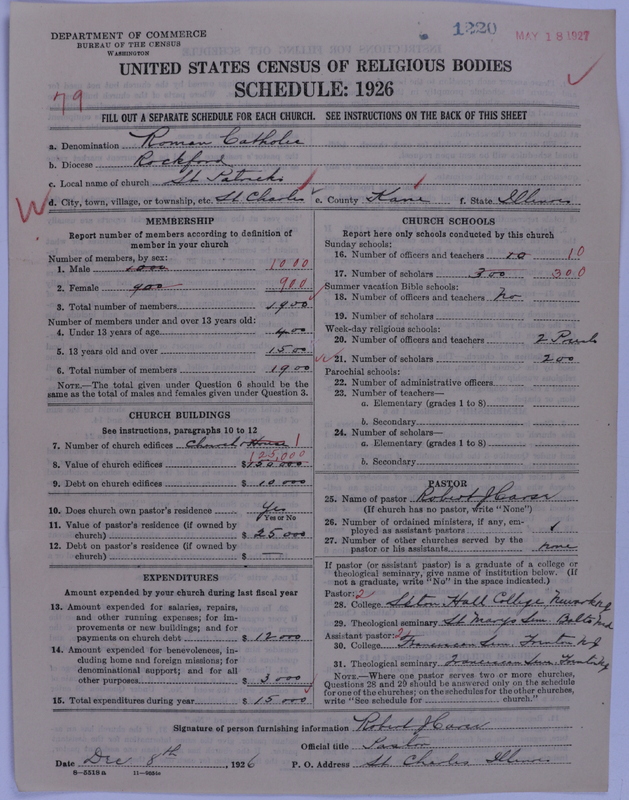 DEPARTMENT OF COMMERCE
BUREAU OF THE CENSUS
WASHINGTON
1220
MAY 18 1927
UNITED STATES CENSUS OF RELIGIOUS BODIES
SCHEDULE: 1926
79
FILL OUT A SEPARATE SCHEDULE FOR EACH CHURCH. SEE INSTRUCTIONS ON THE BACK OF THIS SHEET
a. Denomination Roman Catholic
b. Diocese Rockford
c. Local name of church St Patricks
d. City, town, village, or township, etc. St Charles e. County Kane f. State Illinois
MEMBERSHIP
Report number of members according to definition of
member in your church
Number of members, by sex:
1. Male 1000 1000
2. Female 900 900
3. Total number of members 1900
Number of members under and over 13 years old:
4. Under 13 years of age 400
5. 13 years old and over 1500
6. Total number of members 1900
NOTE.—The total given under Question 6 should be the
same as the total of males and females given under Question 3.
CHURCH BUILDINGS
See instructions, paragraphs 10 to 12
7. Number of church edifices Church & House 1
125,000
8. Value of church edifices $150 000
9. Debt on church edifices $ 10 000
10. Does church own pastor's residence Yes
Yes or No
11. Value of pastor's residence (if owned by
church) $ 25 000
12. Debt on pastor's residence (if owned by
church) $ —
EXPENDITURES
Amount expended by your church during last fiscal year
13. Amount expended for salaries, repairs,
and other running expenses; for im-
provements or new buildings; and for
payments on church debt $ 12 000
14. Amount expended for benevolences, in-
cluding home and foreign missions; for
denominational support; and for all
other purposes $ 3 000
15. Total expenditures during year $ 15 000
CHURCH SCHOOLS
Report here only schools conducted by this church
Sunday schools:
16. Number of officers and teachers 10 10
17. Number of scholars 300 300
Summer vacation Bible schools:
18. Number of officers and teachers No
19. Number of scholars
Week-day religious schools:
20. Number of officers and teachers 2
21. Number of scholars 200
Parochial schools:
22. Number of administrative officers
23. Number of teachers—
a. Elementary (grades 1 to 8)
b. Secondary
24. Number of scholars—
a. Elementary (grades 1 to 8)
b. Secondary
PASTOR
25. Name of pastor Robert J Carse
(If church has no pastor, write "None")
26. Number of ordained ministers, if any, em-
ployed as assistant pastors 1
27. Number of other churches served by the
pastor or his assistants none
If pastor (or assistant pastor) is a graduate of a college or
theological seminary, give name of institution below. (If
not a graduate, write "No" in the space indicated.)
Pastor: 2
28. College Seton Hall College Newark NJ
29. Theological seminary St Marys Sem. Balto Md
Assistant pastor: 2
30. College Franciscan Sem. Trenton NJ
31. Theological seminary Franciscan Sem. Trenton NJ
NOTE.—Where one pastor serves two or more churches,
Questions 28 and 29 should be answered only on the schedule
for one of the churches; on the schedules for the other churches,
write "See schedule for church."
Signature of person furnishing information Robert J Carse
Official title Pastor
Date Dec 8th, 1926 P. O. Address St Charles Illinois
8—5518 a